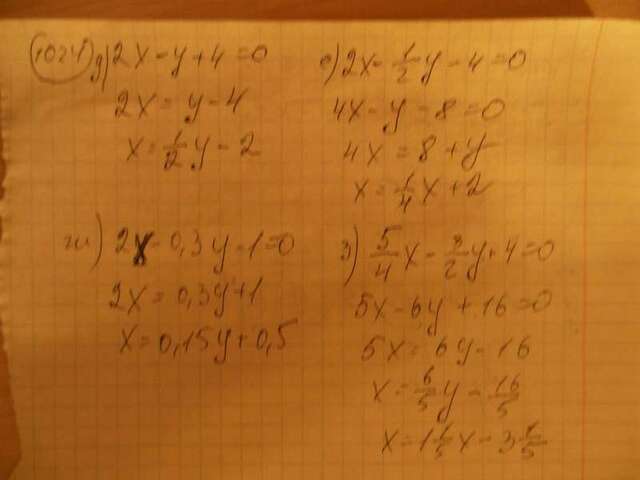 1024 д) 2x - y + 4 = 0
2x = y - 4
x = 1/2 y - 2
е) 2x - 1/2 y - 4 = 0
4x - y - 8 = 0
4x = 8 + y
x = 1/4 x + 2
ж) 2x - 0,3y - 1 = 0
2x = 0,3y + 1
x = 0,15y + 0,5
з) 5/4 x - 3/2 y + 4 = 0
5x - 6y + 16 = 0
5x = 6y - 16
x = 6/5 y - 16/5
x = 1 1/5 x - 3 1/5